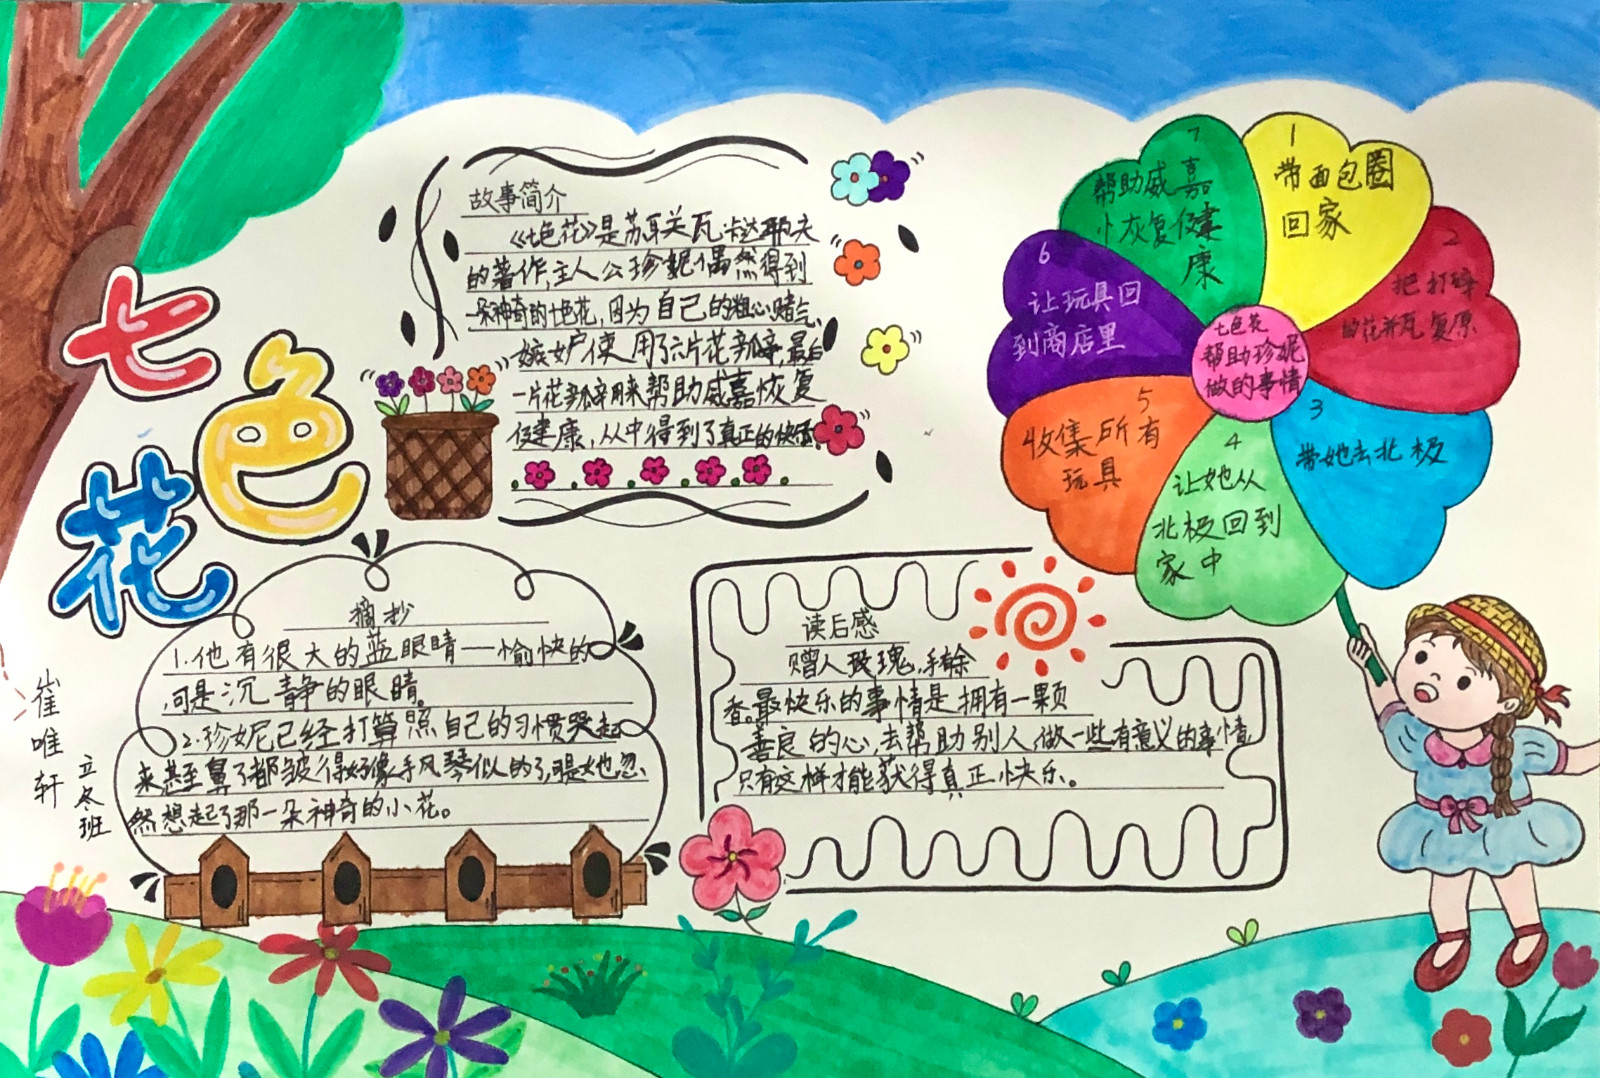 七色花
崔唯轩
立冬班
故事简介
《七色花》是苏联关瓦卡达耶夫
的著作,主人公珍妮偶然得到
一朵神奇的七色花,因为自己的粗心,赌气、
嫉妒使用了六片花瓣,最后
一片花瓣用来帮助威嘉恢复
健康,从中得到了真正的快乐。
摘抄
1.他有很大的蓝眼睛——愉快的
,可是沉静的眼睛。
2.珍妮已经打算照自己的习惯哭起
来甚至鼻子都皱得好像手风琴似的了,可是她忽
然想起了那一朵神奇的小花。
读后感
赠人玫瑰,手有余
香。最快乐的事情是拥有一颗
善良的心,去帮助别人做一些有意义的事情,
只有这样才能获得真正快乐。
七色花
帮助珍妮
做的事情
1
带面包圈
回家
2
把打碎
的花并瓦复原
3
带她去北极
4
让她从
北极回到
家中
5
收集所有
玩具
6
让玩具回
到商店里
7
帮助威嘉
小恢复健
康